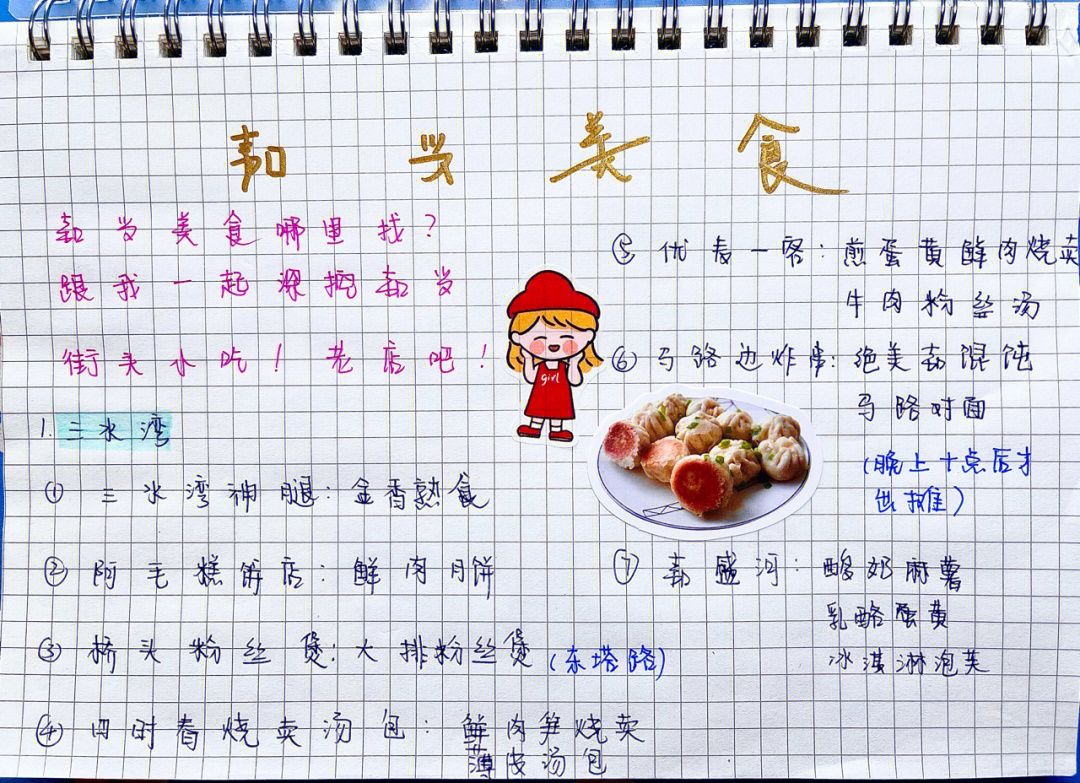 嘉兴美食
嘉兴美食哪里找?
跟我一起深挖嘉兴
街头小吃! 老店吧!
1. 三水湾
① 三水湾神腿: 金香熟食
② 阿毛糕饼店: 鲜肉月饼
③ 桥头粉丝煲: 大排粉丝煲 (东塔路)
④ 四时春烧卖汤包: 鲜肉笋烧卖
薄皮汤包
⑤ 优麦一客: 煎蛋黄鲜肉烧卖
牛肉粉丝汤
⑥ 马路边炸串: 绝美劲混饨
马路对面
(晚上十点后才
出摊)
⑦ 嘉盛河: 酸奶麻薯
乳酪蛋黄
冰淇淋泡芙
girl